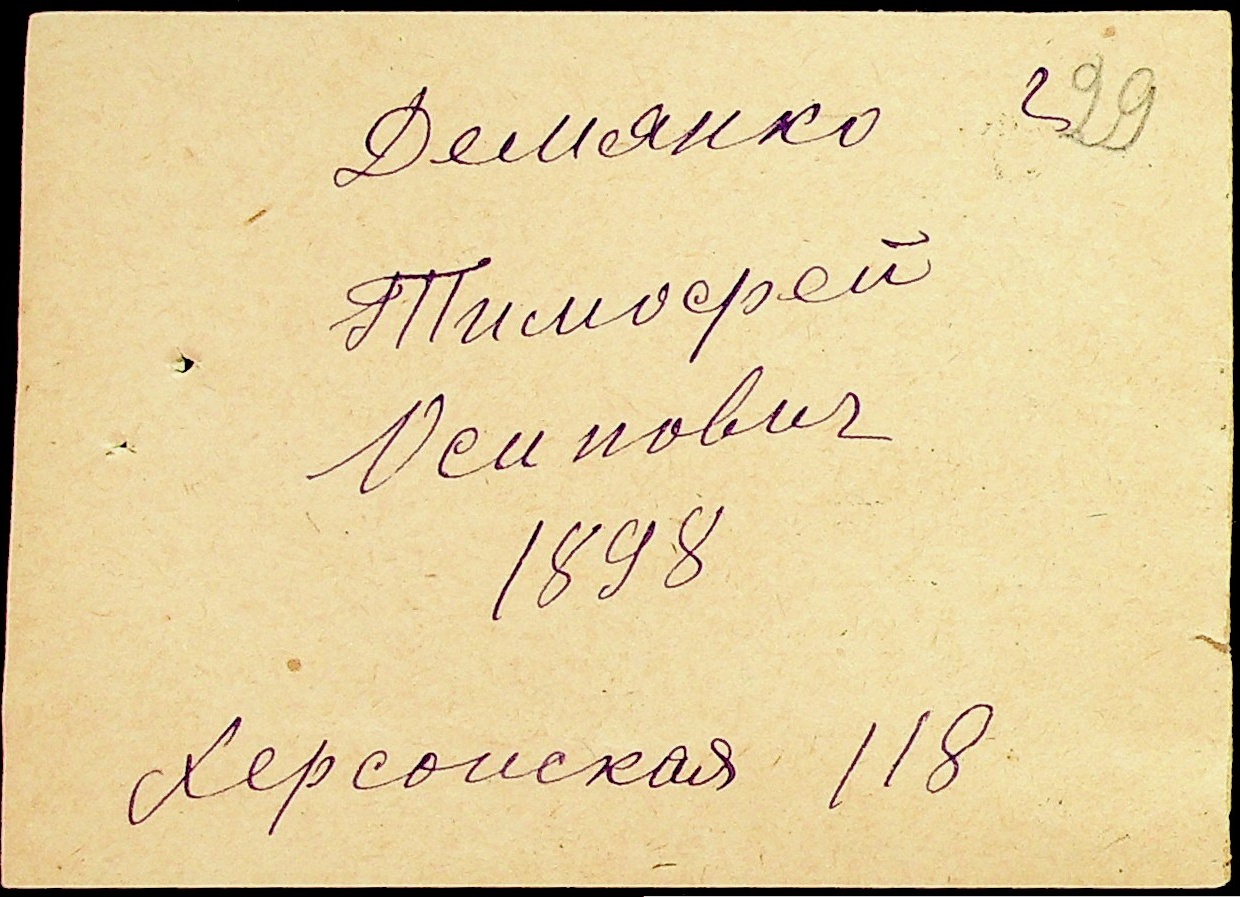 Демянко 29
Тимофей
Осипович
1898
Херсонская 118